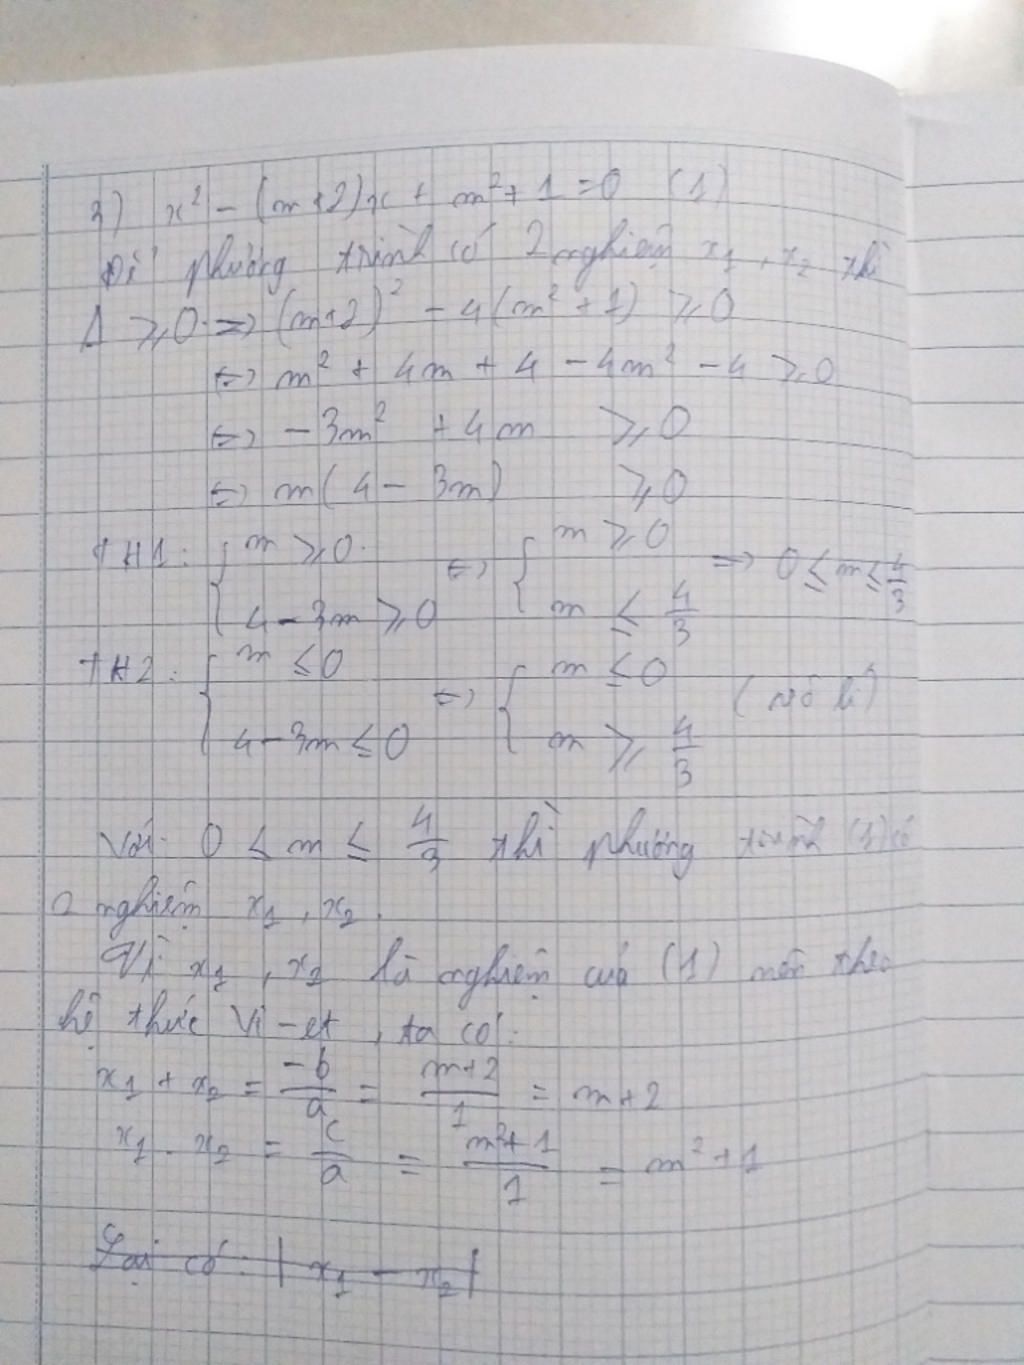 3) x² - (m+2)x + m² + 1 = 0 (1)
Để phương trình có 2 nghiệm x₁, x₂ thì
Δ ⩾ 0 => (m+2)² - 4(m² + 1) ⩾ 0
<=> m² + 4m + 4 - 4m² - 4 ⩾ 0
<=> - 3m² + 4m ⩾ 0
<=> m(4 - 3m) ⩾ 0
TH1: { m ⩾ 0 <=> { m ⩾ 0 => 0 ≤ m ≤ 4/3
4 - 3m ⩾ 0 m ≤ 4/3
TH2: { m ≤ 0 <=> { m ≤ 0 (vô lí)
4 - 3m ≤ 0 m ⩾ 4/3
Với 0 ≤ m ≤ 4/3 thì phương trình (1) có
2 nghiệm x₁, x₂.
Vì x₁, x₂ là nghiệm của (1) nên theo
hệ thức Vi-et, ta có:
x₁ + x₂ = -b/a = m+2/1 = m+2
x₁ . x₂ = c/a = m²+1/1 = m² + 1
Lại có: |x₁ - x₂|